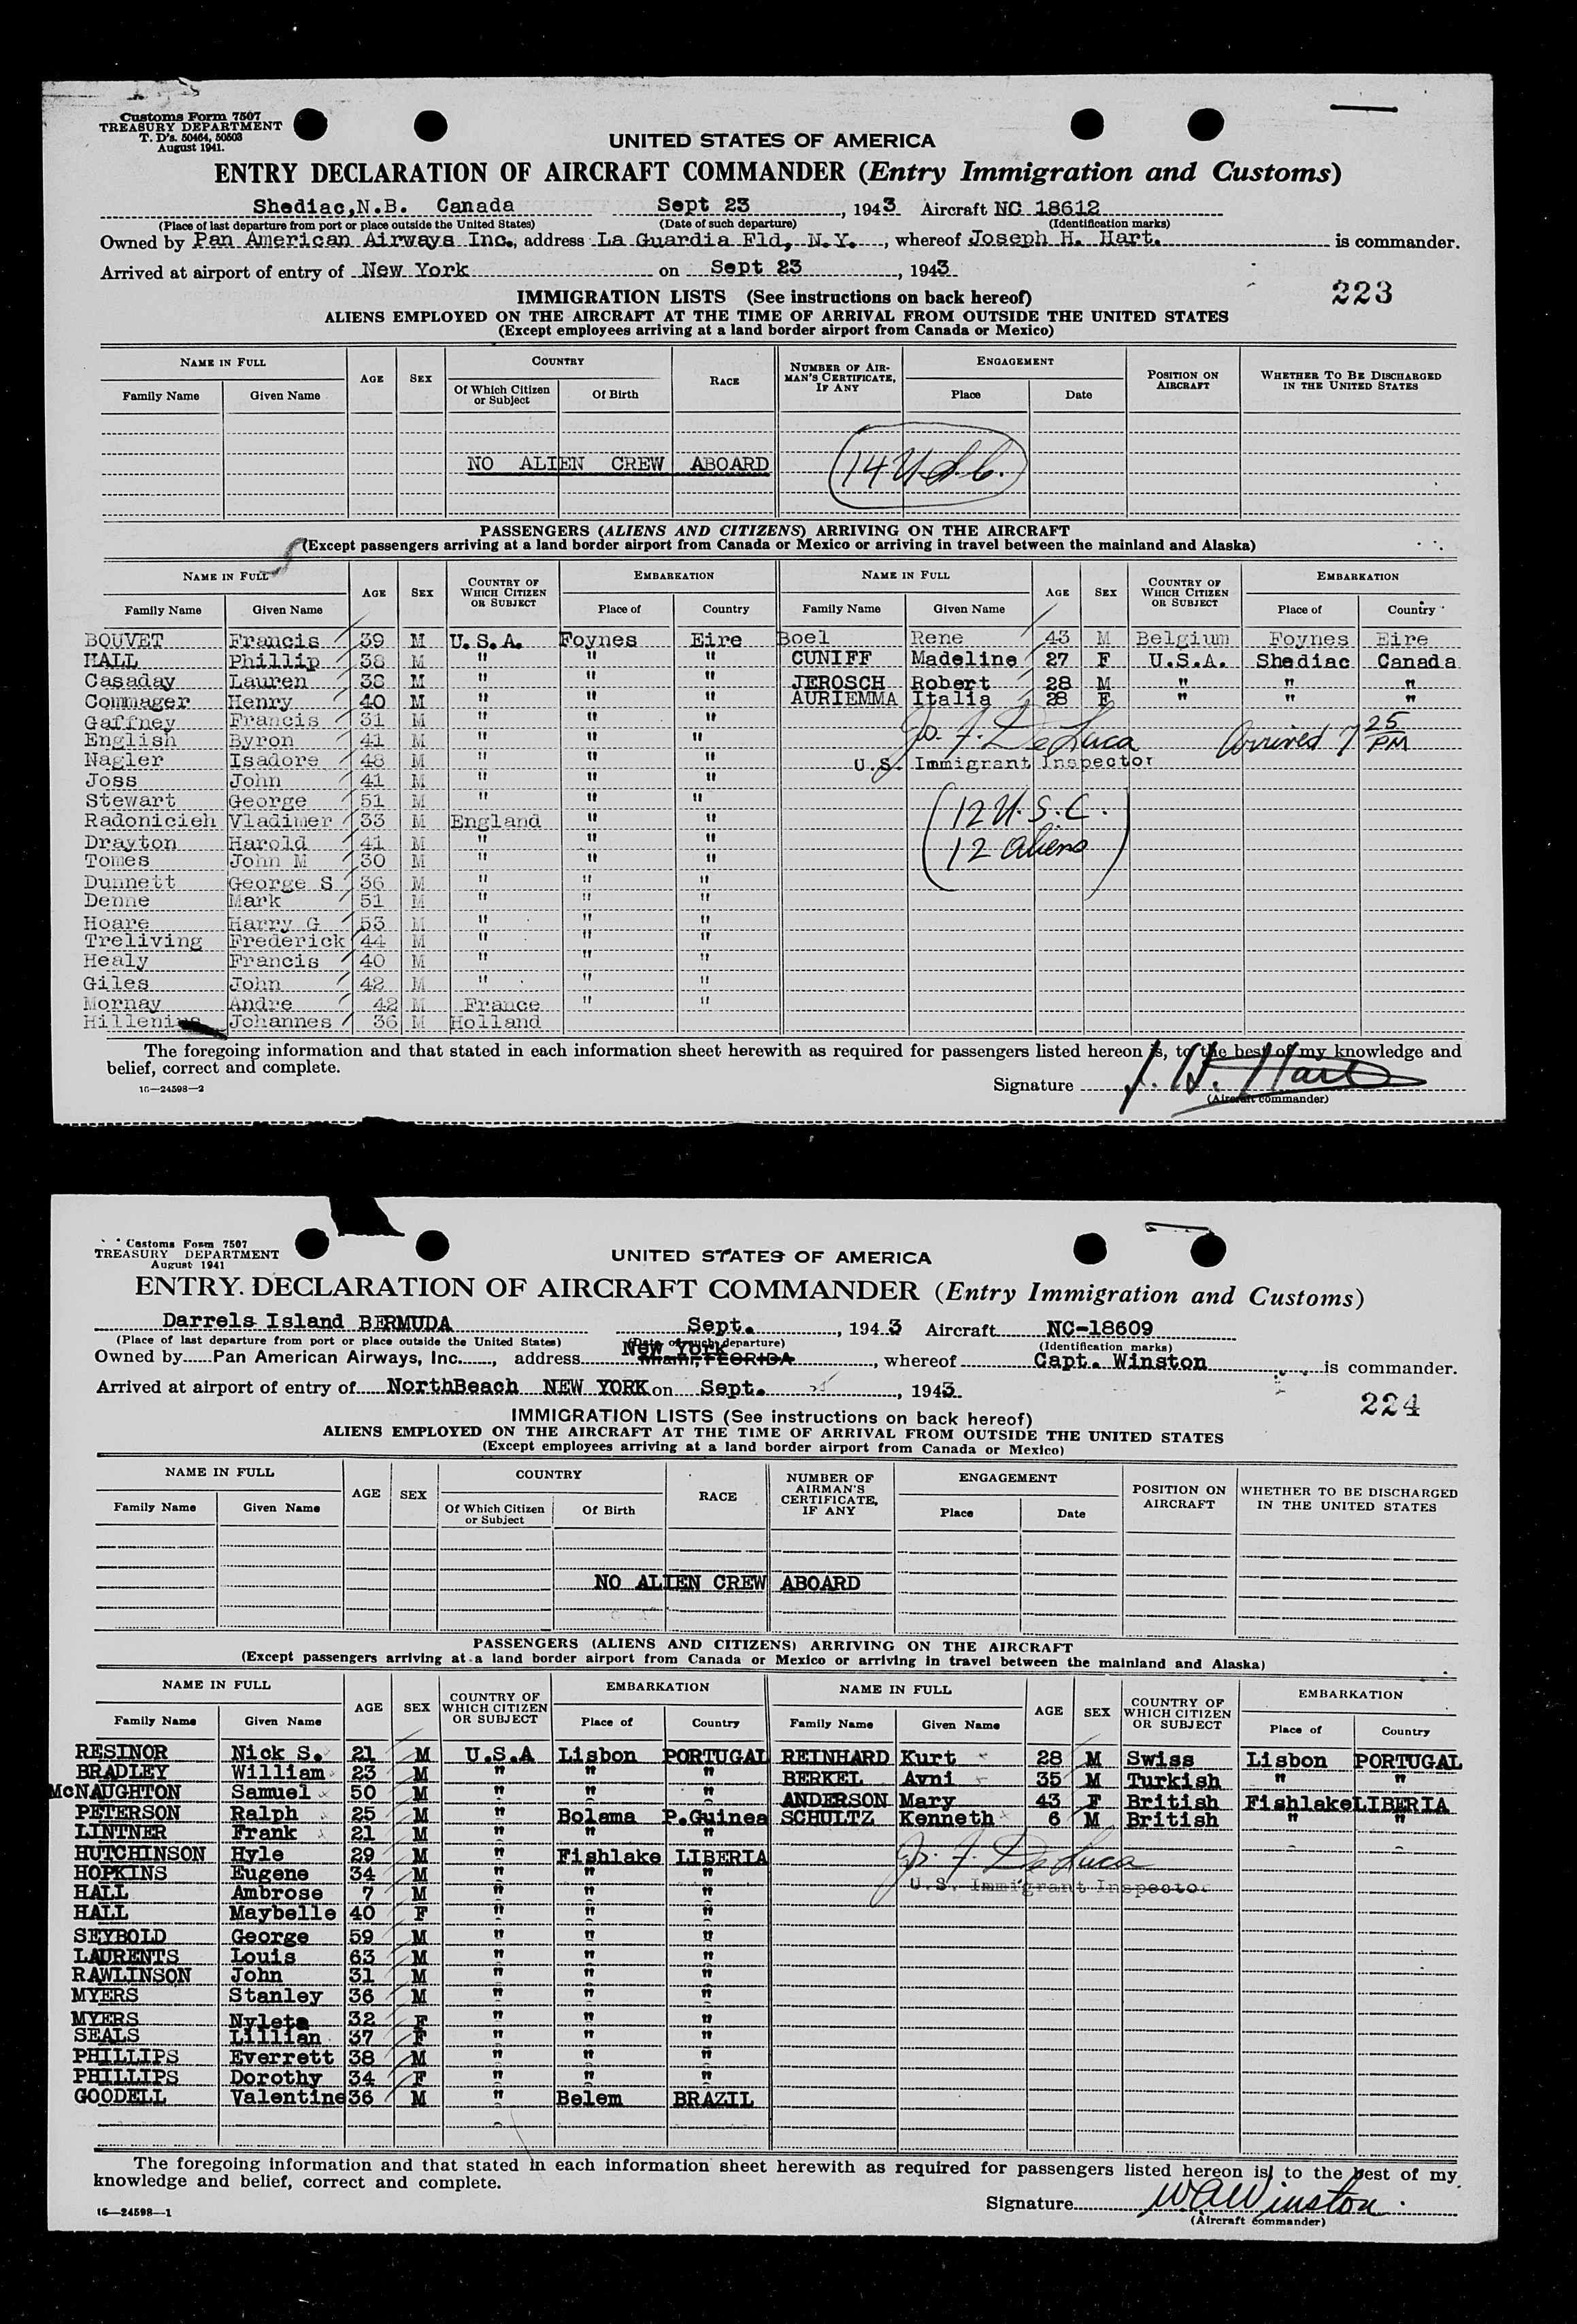 Customs Form 7507
TREASURY DEPARTMENT
T. D's. 50464, 50503
August 1941.
UNITED STATES OF AMERICA
ENTRY DECLARATION OF AIRCRAFT COMMANDER (Entry Immigration and Customs)
Shediac,N.B. Canada Sept 23, 1943 Aircraft NC 18612
(Place of last departure from port or place outside the United States) (Date of such departure) (Identification marks)
Owned by Pan American Airways Inc., address La Guardia Fld, N.Y., whereof Joseph H. Hart. is commander.
Arrived at airport of entry of New York on Sept 23, 1943
223
IMMIGRATION LISTS (See instructions on back hereof)
ALIENS EMPLOYED ON THE AIRCRAFT AT THE TIME OF ARRIVAL FROM OUTSIDE THE UNITED STATES
(Except employees arriving at a land border airport from Canada or Mexico)
NAME IN FULL AGE SEX COUNTRY RACE NUMBER OF AIRMAN'S CERTIFICATE, IF ANY ENGAGEMENT POSITION ON AIRCRAFT WHETHER TO BE DISCHARGED IN THE UNITED STATES
Family Name Given Name Of Which Citizen or Subject Of Birth Place Date
NO ALIEN CREW ABOARD 14 U.S.C.
PASSENGERS (ALIENS AND CITIZENS) ARRIVING ON THE AIRCRAFT
(Except passengers arriving at a land border airport from Canada or Mexico or arriving in travel between the mainland and Alaska)
NAME IN FULL AGE SEX COUNTRY OF WHICH CITIZEN OR SUBJECT EMBARKATION NAME IN FULL AGE SEX COUNTRY OF WHICH CITIZEN OR SUBJECT EMBARKATION
Family Name Given Name Place of Country Family Name Given Name Place of Country
BOUVET Francis 39 M U.S.A. Foynes Eire Boel Rene 43 M Belgium Foynes Eire
HALL Phillip 38 M " " " CUNIFF Madeline 27 F U.S.A. Shediac Canada
Casaday Lauren 38 M " " " JEROSCH Robert 28 M " " "
Commager Henry 40 M " " " AURIEMMA Italia 28 F " " "
Gaffney Francis 31 M " " "
English Byron 41 M " " " Jo. F. DeLuca Arrived 7 25 PM
Nagler Isadore 48 M " " " U.S. Immigrant Inspector
Joss John 41 M " " "
Stewart George 51 M " " "
Radonicieh Vladimer 33 M England " " 12 U.S.C.
Drayton Harold 41 M " " "
Tomes John M 30 M " " " 12 aliens
Dunnett George S 36 M " " "
Denne Mark 51 M " " "
Hoare Harry G 53 M " " "
Treliving Frederick 44 M " " "
Healy Francis 40 M " " "
Giles John 42 M " " "
Mornay Andre 42 M France " "
Hillenius Johannes 36 M Holland
The foregoing information and that stated in each information sheet herewith as required for passengers listed hereon is, to the best of my knowledge and
belief, correct and complete.
16—24598—2
Signature J. H. Hart
(Aircraft commander)
Customs Form 7507
TREASURY DEPARTMENT
August 1941
UNITED STATES OF AMERICA
ENTRY DECLARATION OF AIRCRAFT COMMANDER (Entry Immigration and Customs)
Darrels Island BERMUDA Sept. , 1943 Aircraft NC-18609
(Place of last departure from port or place outside the United States) (Date of such departure) (Identification marks)
Owned by Pan American Airways, Inc., address New York Miami, FLORIDA, whereof Capt. Winston is commander.
Arrived at airport of entry of NorthBeach NEW YORK on Sept. , 1943
224
IMMIGRATION LISTS (See instructions on back hereof)
ALIENS EMPLOYED ON THE AIRCRAFT AT THE TIME OF ARRIVAL FROM OUTSIDE THE UNITED STATES
(Except employees arriving at a land border airport from Canada or Mexico)
NAME IN FULL AGE SEX COUNTRY RACE NUMBER OF AIRMAN'S CERTIFICATE, IF ANY ENGAGEMENT POSITION ON AIRCRAFT WHETHER TO BE DISCHARGED IN THE UNITED STATES
Family Name Given Name Of Which Citizen or Subject Of Birth Place Date
NO ALIEN CREW ABOARD
PASSENGERS (ALIENS AND CITIZENS) ARRIVING ON THE AIRCRAFT
(Except passengers arriving at a land border airport from Canada or Mexico or arriving in travel between the mainland and Alaska)
NAME IN FULL AGE SEX COUNTRY OF WHICH CITIZEN OR SUBJECT EMBARKATION NAME IN FULL AGE SEX COUNTRY OF WHICH CITIZEN OR SUBJECT EMBARKATION
Family Name Given Name Place of Country Family Name Given Name Place of Country
RESINOR Nick S. 21 M U.S.A Lisbon PORTUGAL REINHARD Kurt 28 M Swiss Lisbon PORTUGAL
BRADLEY William 23 M " " " BERKEL Avni 35 M Turkish " "
McNAUGHTON Samuel 50 M " " " ANDERSON Mary 43 F British Fishlake LIBERIA
PETERSON Ralph 25 M " Bolama P.Guinea SCHULTZ Kenneth 6 M British " "
LINTNER Frank 21 M " " "
HUTCHINSON Hyle 29 M " Fishlake LIBERIA Jo. F. DeLuca
HOPKINS Eugene 34 M " " "
HALL Ambrose 7 M " " " U.S. Immigrant Inspector
HALL Maybelle 40 F " " "
SEYBOLD George 59 M " " "
LAURENTS Louis 63 M " " "
RAWLINSON John 31 M " " "
MYERS Stanley 36 M " " "
MYERS Nyleta 32 F " " "
SEALS Lillian 37 F " " "
PHILLIPS Everrett 38 M " " "
PHILLIPS Dorothy 34 F " " "
GOODELL Valentine 36 M " Belem BRAZIL
The foregoing information and that stated in each information sheet herewith as required for passengers listed hereon is, to the best of my
knowledge and belief, correct and complete.
16—24598—1
Signature WAWinston
(Aircraft commander)